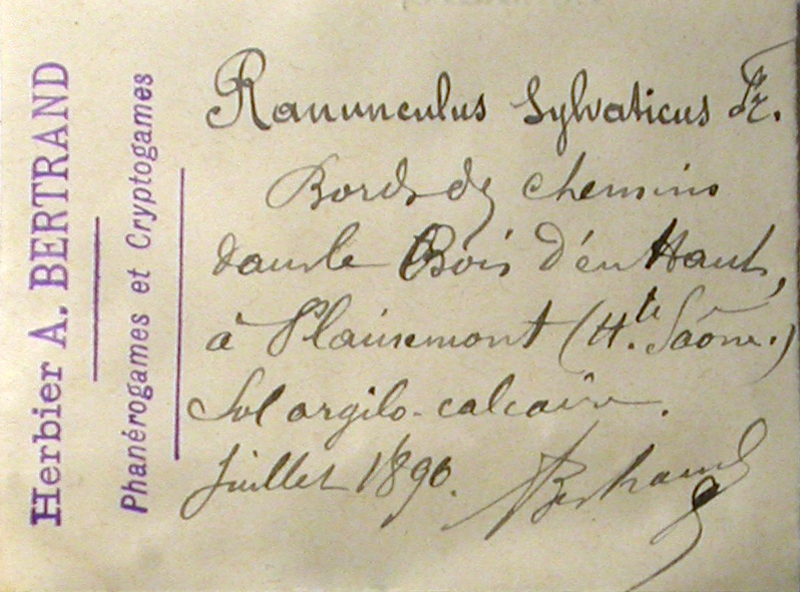 Herbier A. BERTRAND
Phanérogames et Cryptogames
Ranunculus Sylvaticus Fr.
Bords des chemins
dans le Bois d'en Haut,
à Plainemont (H.te Saône.)
Sol argilo-calcaire.
Juillet 1890.
Bertrand